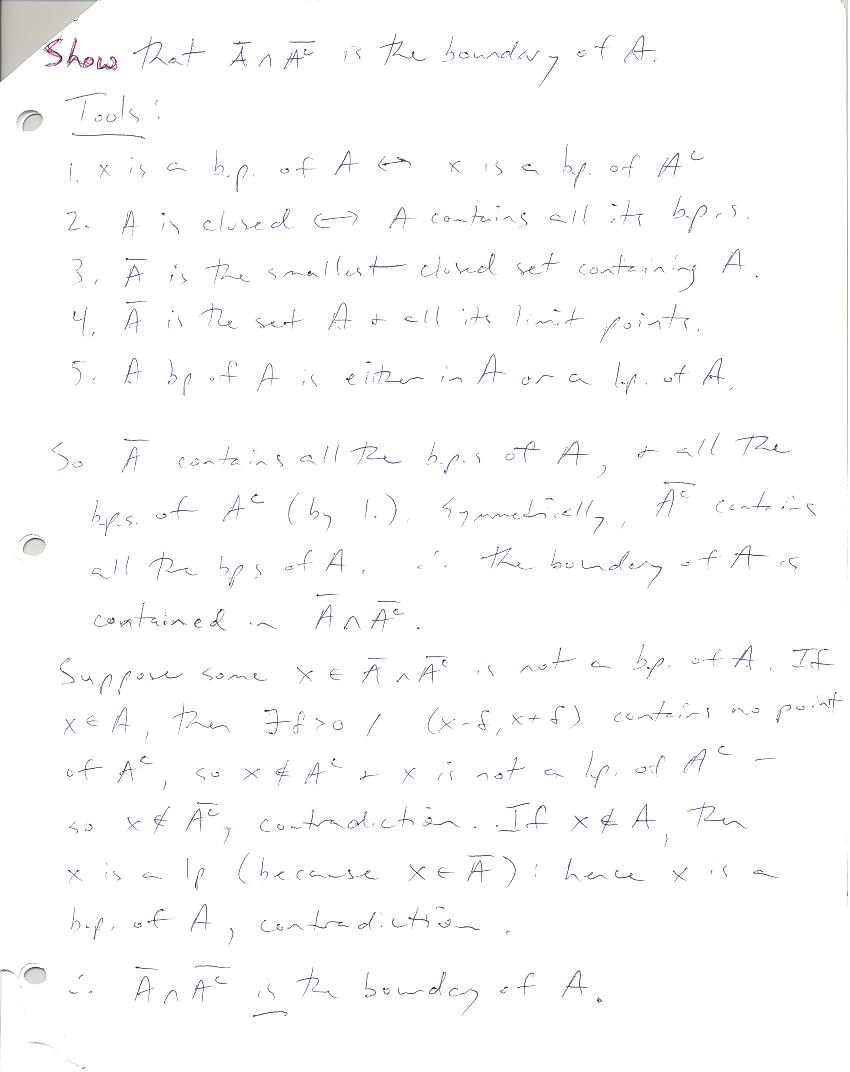 Show that A̅ ∩ A̅ᶜ̅ is the boundary of A.
Tools:
1. x is a b.p. of A ↔ x is a b.p. of Aᶜ
2. A is closed ↔ A contains all its b.p.s.
3. A̅ is the smallest closed set containing A.
4. A̅ is the set A + all its limit points.
5. A bp of A is either in A or a l.p. of A.
So A̅ contains all the b.p.s of A, + all the
b.p.s. of Aᶜ (by 1.). Symmetrically, A̅ᶜ̅ contains
all the bps of A. ∴ the boundary of A is
contained in A̅ ∩ A̅ᶜ̅.
Suppose some x ∈ A̅ ∩ A̅ᶜ̅ is not a b.p. of A. If
x ∈ A, then ∃ δ>0 / (x-δ, x+δ) contains no point
of Aᶜ, so x ∉ Aᶜ + x is not a l.p. of Aᶜ –
so x ∉ A̅ᶜ̅, contradiction. If x ∉ A, then
x is a lp (because x ∈ A̅): hence x is a
b.p. of A, contradiction.
∴ A̅ ∩ A̅ᶜ̅ is the boundary of A.